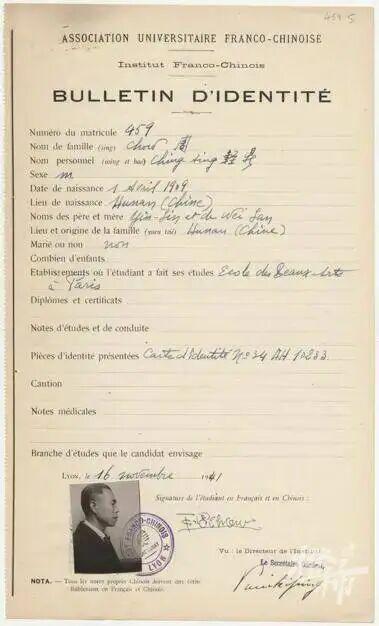 459 5
ASSOCIATION UNIVERSITAIRE FRANCO-CHINOISE
Institut Franco-Chinois
BULLETIN D'IDENTITÉ
Numéro du matricule 459
Nom de famille (sing) Chow 周
Nom personnel (ming et hao) Ching ting 輕
Sexe m
Date de naissance 1 Avril 1909
Lieu de naissance Hunan (Chine)
Noms des père et mère et de Wei San
Lieu et origine de la famille Hunan (Chine)
Marié ou non non
Combien d'enfants
Etablissements où l'étudiant a fait ses études Ecole des Beaux-Arts
à Paris
Diplômes et certificats
Notes d'études et de conduite
Pièces d'identité présentées Carte d'Identité No 34 AH 10233
Caution
Notes médicales
Branche d'études que le candidat envisage
Lyon, le 16 novembre 1941
Signature de l'étudiant en Français et en Chinois :
Chow
FRANCO-CHINOIS
Vu : le Directeur de l'Institut,
Le Secrétaire Général,
NOTA. — Tous les noms propres Chinois doivent être écrits
lisiblement en Français et Chinois.